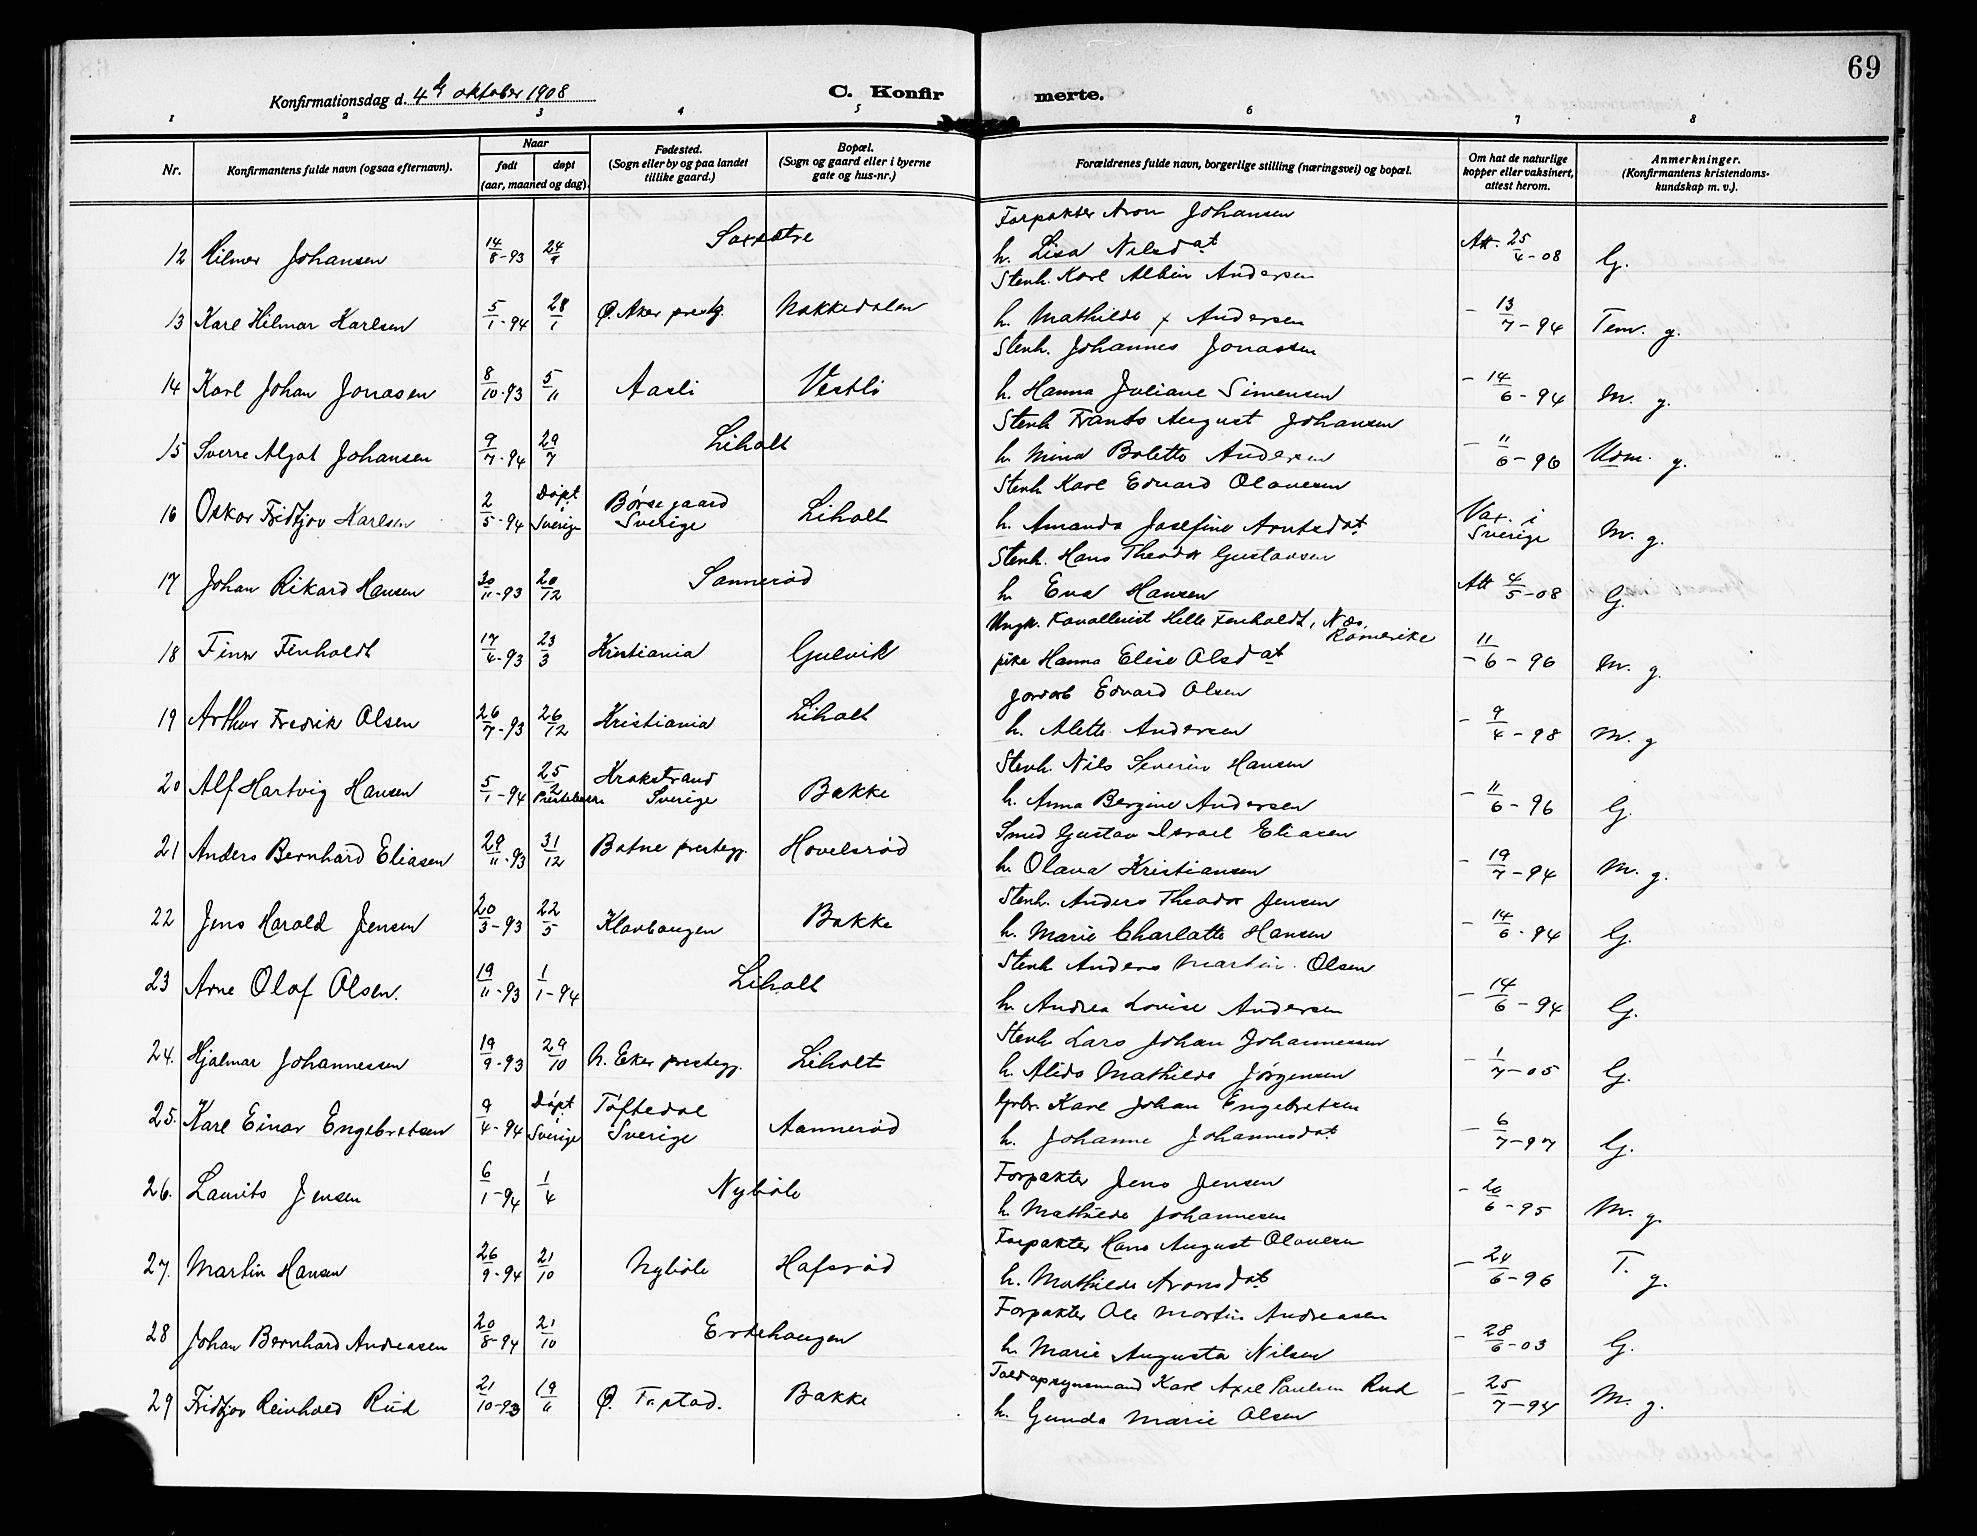 69
Konfirmationsdag d. 4de oktober 1908
C. Konfirmerte.
1 2 3 4 5 6 7 8
Nr.
Konfirmantens fulde navn (ogsaa efternavn).
Naar
født
døpt
(aar, maaned og dag).
Fødested.
(Sogn eller by og paa landet
tillike gaard.)
Bopæl.
(Sogn og gaard eller i byerne
gate og hus-nr.)
Forældrenes fulde navn, borgerlige stilling (næringsvei) og bopæl.
Om hat de naturlige
kopper eller vaksinert,
attest herom.
Anmerkninger.
(Konfirmantens kristendoms-
kundskap m. v.).
Forpakter Aron Johansen
12 Rilmer Johansen 14/8-93 24/9 h. Lisa Nilsdat Att. 25/4-08 G.
Stenh. Karl Albin Andersen
13 Karl Hilmar Karlsen 5/1-94 28/1 Ø. Aker prestg. Nakkedalen h. Mathilde x Andersen - 13/7-94 Tem. g.
Stenh. Johannes Jonassen
14 Karl Johan Jonasen 8/10-93 5/11 Aasli Vestli h. Hanna Juliane Simensen - 14/6-94 M. g.
Stenh Frants August Johansen
15 Sverre Algot Johansen 9/7-94 29/7 Liholt h. Mina Bolette Andersen - 11/6-96 Udm. g.
Stenh. Karl Edvard Olavesen
16 Oskar Fridtjov Karlsen 2/5-94 Døpt i Sverige Børsegaard Sverige Liholt h. Amanda Josefine Arntsdat Vax. i Sverige M. g.
Stenh. Hans Theodor Gustavsen
17 Johan Rikard Hansen 30/11-93 20/12 Sannerød h. Eva Hansen Att 4/5-08 G.
Ungk. Kavallerist Helle Fenholdt, Næs, Romerike
18 Finn Finholdt 17/4-93 23/3 Kristiania Gulvik pike Hanna Elise Olsdat - 11/6-96 M. g.
Jordarb Edvard Olsen
19 Arthur Fredrik Olsen 26/7-93 26/12 Kristiania Liholt h. Alette Andersen - 9/4-98 M. g
Stenh. Nils Severin Hansen
20 Alf Hartvig Hansen 5/1-94 25/2 Krokstrand Sverige Bakke h. Anna Bergine Andersen - 11/6-96 G.
Smed Gustav Israel Eliasen
21 Anders Bernhard Eliasen 29/11-93 31/12 Botne prestegj. Hovelsrød h. Olava Kristiansen - 19/7-94 M. g.
Stenh. Anders Theodor Jensen
22 Jens Harald Jensen 20/3-93 22/5 Klavhaugen Bakke h. Marie Charlotte Hansen - 14/6-94 G.
Stenh Anders Martin Olsen
23 Arne Olaf Olsen. 19/11-93 1/1-94 Liholt h. Andrea Lovise Andersen - 14/6-94 G.
Stenh Lars Johan Johannessen
24. Hjalmar Johannessen 19/9-93 29/10 N. Eker prestegj. Liholt h. Alida Mathilde Jørgensen - 1/7-05 G.
Grbr. Karl Johan Engebretsen
25. Karl Einar Engebretsen 9/4-94 Døpt i Sverige Töftedal Sverige Aannerød h. Johanne Johannesdat - 6/7-97 G.
Forpakter Jens Jensen
26. Laurits Jensen 6/1-94 1/4 Nybøle h. Mathilde Johannesen - 20/6-95 M. g.
Forpakter Hans August Olavesen
27. Martin Hansen 26/9-94 21/10 Nybøle Hafsrød h. Mathilde Aronsdat - 24/6-96 T. g.
Forpakter Ole Martin Andreasen
28 Johan Bernhard Andreasen 20/8-94 21/10 Endehaugen h. Marie Augusta Nilsen - 28/6-03 G.
Toldopsynsmand Karl Axel Paulsen Rud
29 Fridtjov Reinhold Rud 21/10-93 19/11 Ø. Fr.stad. Bakke h. Gunda Marie Olsen - 25/7-94 M. g.